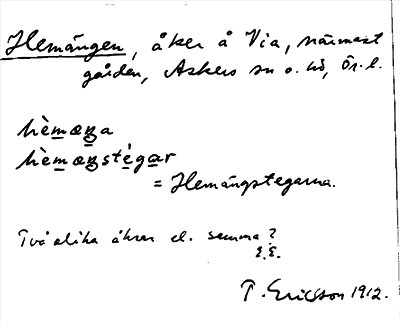 Hemängen, åker å Via, närmast
gården, Askers sn o. hd, Ör. l.
hèmæŋa
hèmæŋstègar
= Hemängstegarna.
Två olika åkrar el. samma?
E.E.
T. Ericsson 1912.